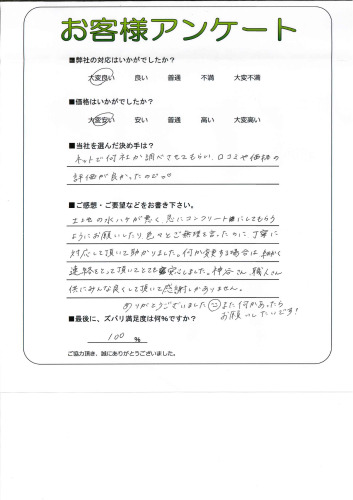 お客様アンケート
■弊社の対応はいかがでしたか？
大変良い　良い　普通　不満　大変不満
■価格はいかがでしたか？
大変安い　安い　普通　高い　大変高い
■当社を選んだ決め手は？
ネットで何社か調べさせてもらい、口コミや価格の
評価が良かったので。
■ご感想・ご要望などをお書き下さい。
土地の水ハケが悪く、急にコンクリートにしてもらう
ようにお願いしたり、色々とご無理を言ったのに、丁寧に
対応して頂いて助かりました。何か変更する場合は細かく
連絡をとって頂いてとても安心しました。神谷さん、職人さん
供にみんな良くして頂いて感謝しかありません。
ありがとうございました また何かあったら
お願いしたいです！
■最後に、ズバリ満足度は何％ですか？
100 ％
ご協力頂き、誠にありがとうございました。